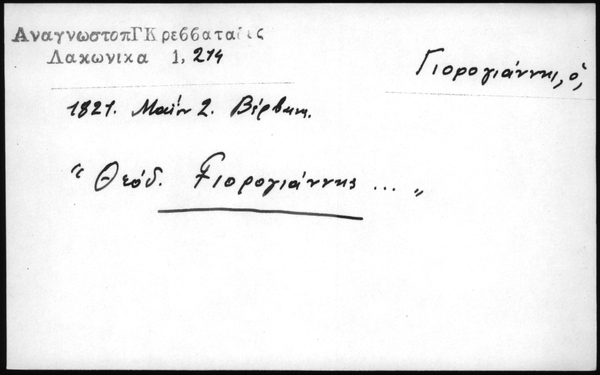 ΑναγνωστοπΓΚρεββαταίις
Λακωνικα 1, 214
Γιορογιάννης, ὁ,
1821. Μαΐου 2. Βέρβενα.
“Θεόδ. Γιορογιάννης ... „